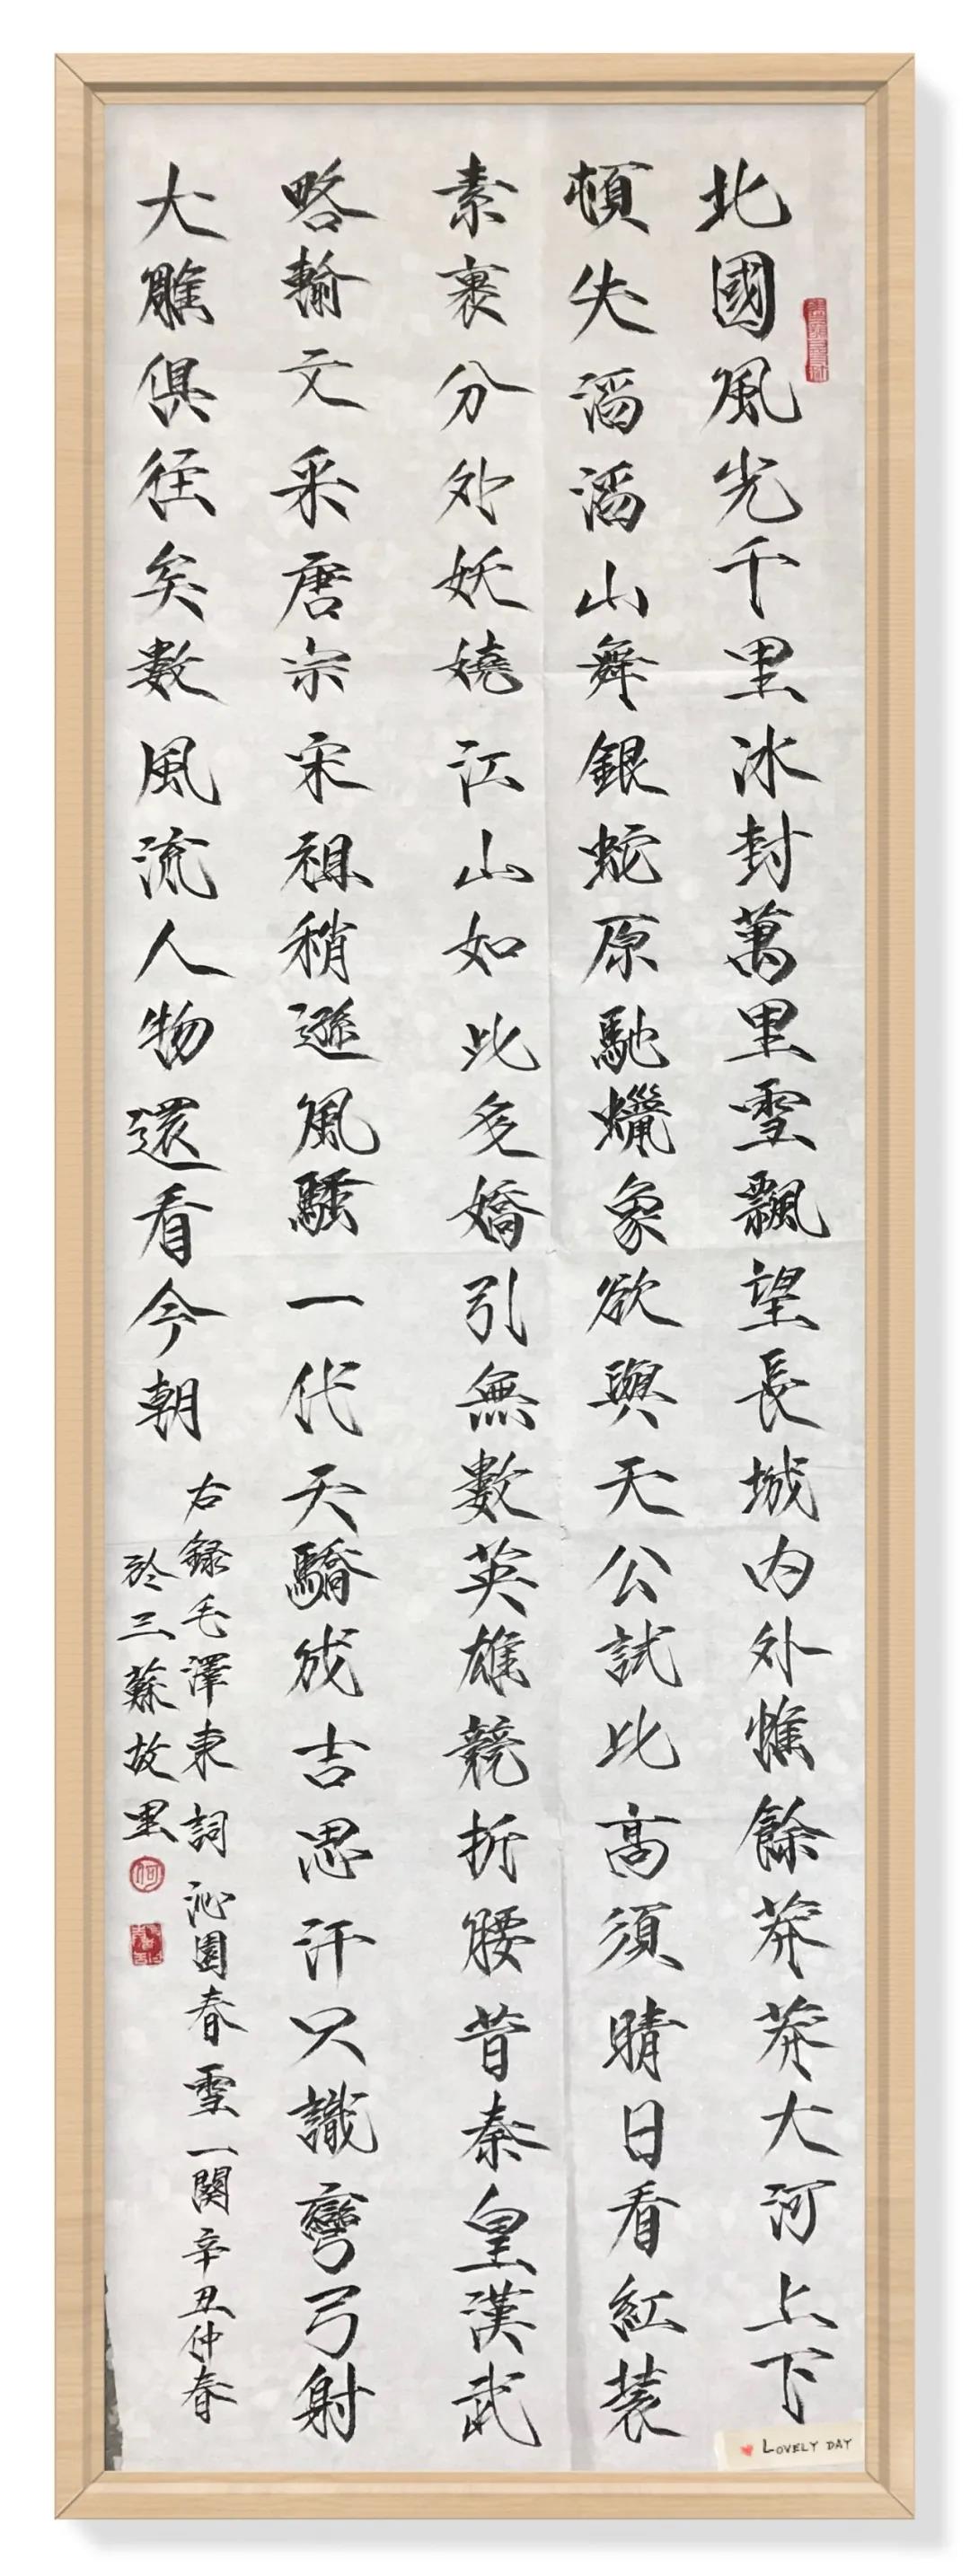 北國風光千里冰封萬里雪飄望長城内外惟餘莽莽大河上下
頓失滔滔山舞銀蛇原馳蠟象欲與天公試比高須晴日看紅裝
素裹分外妖嬈江山如此多嬌引無數英雄競折腰昔秦皇漢武
略輸文采唐宗宋祖稍遜風騷一代天驕成吉思汗只識彎弓射
大雕俱往矣數風流人物還看今朝
右録毛澤東詞沁園春雪一闋辛丑仲春
於三蘇故里
何
LOVELY DAY